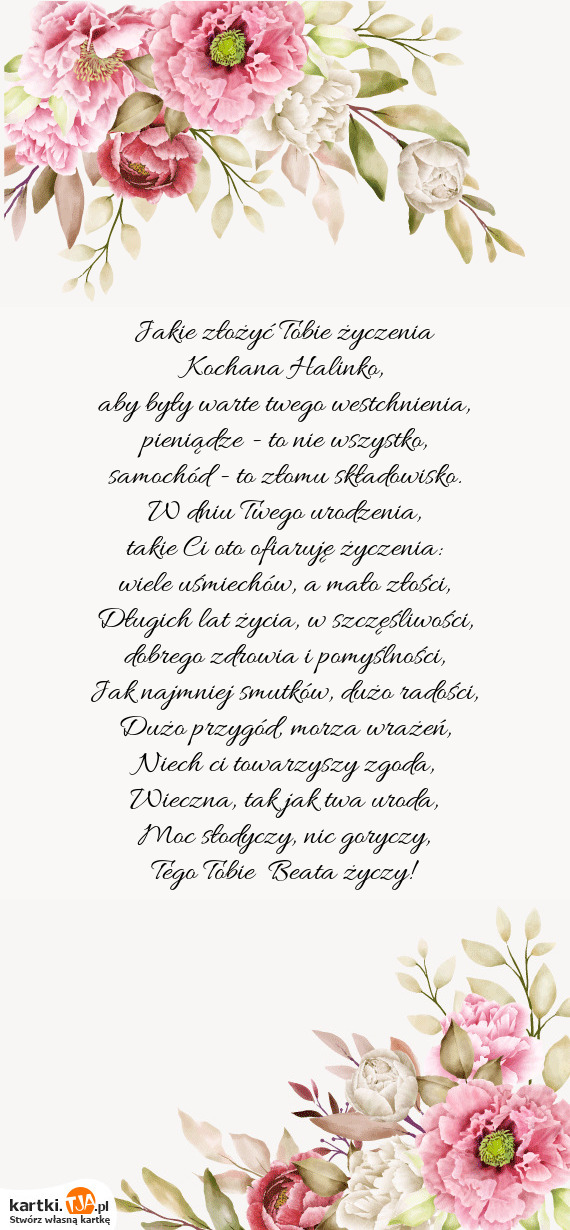 Jakie złożyć Tobie życzenia
Kochana Halinko,
aby były warte twego westchnienia,
pieniądze - to nie wszystko,
samochód - to złomu składowisko.
W dniu Twego urodzenia,
takie Ci oto ofiaruję życzenia:
wiele uśmiechów, a mało złości,
Długich lat życia, w szczęśliwości,
dobrego zdrowia i pomyślności,
Jak najmniej smutków, dużo radości,
Dużo przygód, morza wrażeń,
Niech ci towarzyszy zgoda,
Wieczna, tak jak twa uroda,
Moc słodyczy, nic goryczy,
Tego Tobie Beata życzy!
kartki.TJA.pl
Stwórz własną kartkę